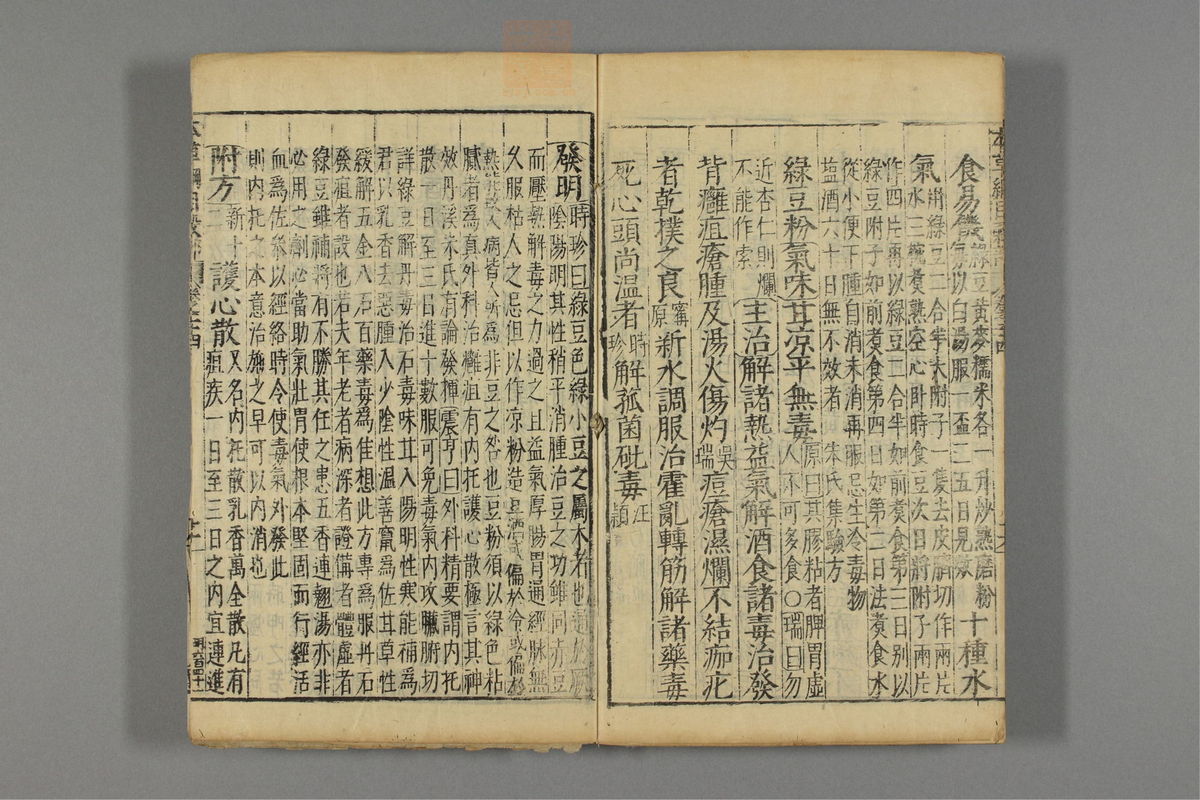 食易饑 綠豆黃麥糯米各一升炒熟磨粉
每以白湯服一盃三五日見效 十種水
氣 用綠豆二合半大附子一隻去皮臍切作兩片
水三椀煑熟空心卧時食豆次日將附子兩片
作四片再以綠豆二合半如前煑食第三日別以
綠豆附子如前煑食第四日如第二日法煑食水
從小便下腫自消未消再服忌生冷毒物
塩酒六十日無不效者 朱氏集驗方
綠豆粉氣味甘凉平無毒 原曰其膠粘者脾胃虛
人不可多食○瑞曰勿
近杏仁則爛
不能作索
主治解諸熱益氣解酒食諸毒治發
背癰疽瘡腫及湯火傷灼 吳瑞 痘瘡濕爛不結痂疕
者乾撲之良 甯原 新水調服治霍亂轉筋解諸藥毒
死心頭尚温者 時珍 解菰菌砒毒 汪穎
發明 時珍曰綠豆色綠小豆之屬木者也通於厥
陰陽明其性稍平消腫治豆之功雖同赤豆
而壓熱解毒之力過之且益氣厚腸胃通經脉無
久服枯人之忌但以作凉粉造豆酒或偏於冷或偏於
熱能致人病皆人所為非豆之咎也豆粉須以綠色粘
膩者爲真外科治癰疽有内托護心散極言其神
效丹溪朱氏有論發揮震亨曰外科精要謂内托
散一日至三日進十數服可免毒氣内攻臓腑切
詳綠豆解丹毒治石毒味甘入陽明性寒能補爲
君以乳香去惡腫入少陰性温善竄爲佐甘草性
緩解五金八石百藥毒爲使想此方專爲服丹石
發疽者設也若夫年老者病深者證備者體虛者
綠豆雖補將有不勝其任之患五香連翹湯亦非
必用之劑必當助氣壯胃使根本堅固而行經活
血爲佐參以經絡時令使毒氣外發此
則内托之本意治施之早可以内消也
附方 新十二 護心散 又名内托散乳香萬全散凡有
疽疾一日至三日之内宜連進